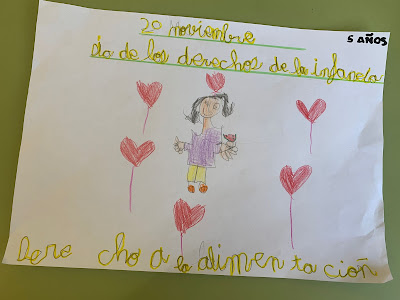 20 Noviembre
5 AÑOS
Día de los derechos de la infancia
Derecho a la alimentación